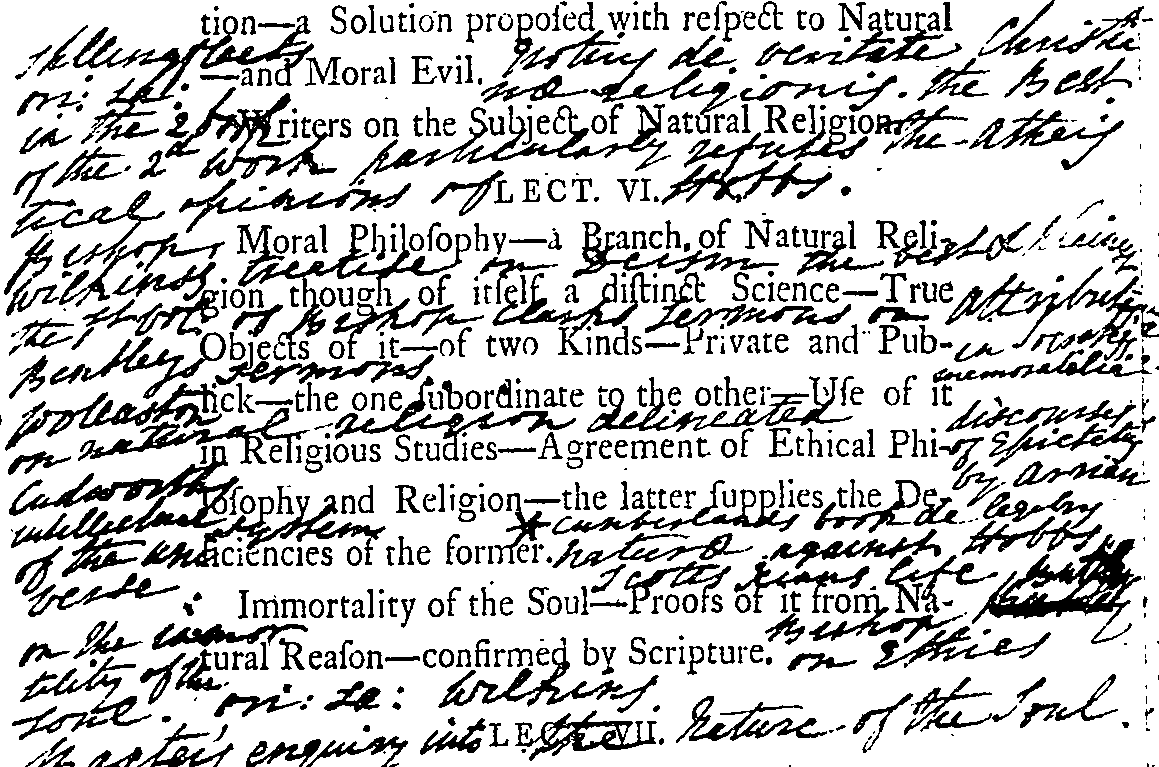 tion—a Solution propoſed with reſpect to Natural
Stillingfleets
—and Moral Evil. de veritate Christi
ori: sa: næ religionis. the Best
in the 2d book Writers on the Subject of Natural Religion. the Atheis
of the 2d Work particularly refutes
tical opinions of LECT. VI. Hobbs.
Bishop Moral Philoſophy—a Branch of Natural Reli-
Wilkins's treatise on Deism the best
gion though of itſelf a diſtinct Science—True
the 1st vol: of Bishop Clarks Sermons on Attributes
Objects of it—of two Kinds—Private and Pub-
Bentleys Sermons. in
memorabilia
lick—the one ſubordinate to the other—Uſe of it
Wollaston
on natural religion delineated discourses
in Religious Studies—Agreement of Ethical Phi-
of Epictetus
by Arrian
Cudworths
loſophy and Religion—the latter ſupplies the De-
intellectual system Cumberlands book de legibus
ficiencies of the former. naturæ against Hobbs
of the uni
verse Scotts Xians life
Immortality of the Soul—Proofs of it from Na-
on the immor Bishop
tural Reaſon—confirmed by Scripture. on Ethics
tality of the
soul. ori: sa: Wilkins
LECT. VII.
enquiry into the Nature of the Soul.